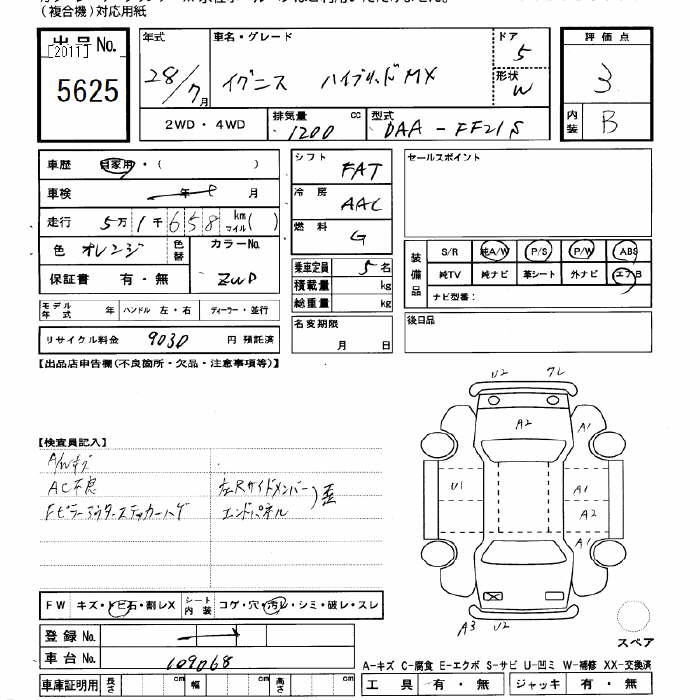 (複合機)対応用紙
出品 No.
[2011]
5625
年式
28/7月
車名・グレード
イグニス ハイブリッドMX
ドア
5
形状
W
評価点
3
内装
B
2WD・4WD
排気量
1200 cc
型式
DAA-FF21S
車歴 自家用・( )
車検 年 月
走行 5万1千658 km マイル( )
色 オレンジ 色替
カラーNo.
ZWD
保証書 有・無
モデル年式 年 ハンドル 左・右 ディーラー・並行
リサイクル料金 9030 円 預託済
シフト FAT
冷房 AAC
燃料 G
乗車定員 5名
積載量 kg
総重量 kg
名変期限
月 日
セールスポイント
装備品
S/R 純A/W P/S P/W ABS
純TV 純ナビ 革シート 外ナビ エアB
ナビ型番:
後日品
【出品店申告欄(不良箇所・欠品・注意事項等)】
【検査員記入】
A/Wキズ
AC不良 左Rサイドメンバー
エンドパネル
)歪
FW キズ・トビ石・割レX
シート内装 コゲ・穴・汚レ・シミ・破レ・スレ
登録 No.
車台 No. 109068
車庫証明用 長さ cm 幅 cm 高さ cm
U2
A2
A1
U1
A1
A2
A1
A3 U2
スペア
A-キズ C-腐食 E-エクボ S-サビ U-凹ミ W-補修 XX-交換済
工具 有・無 ジャッキ 有・無